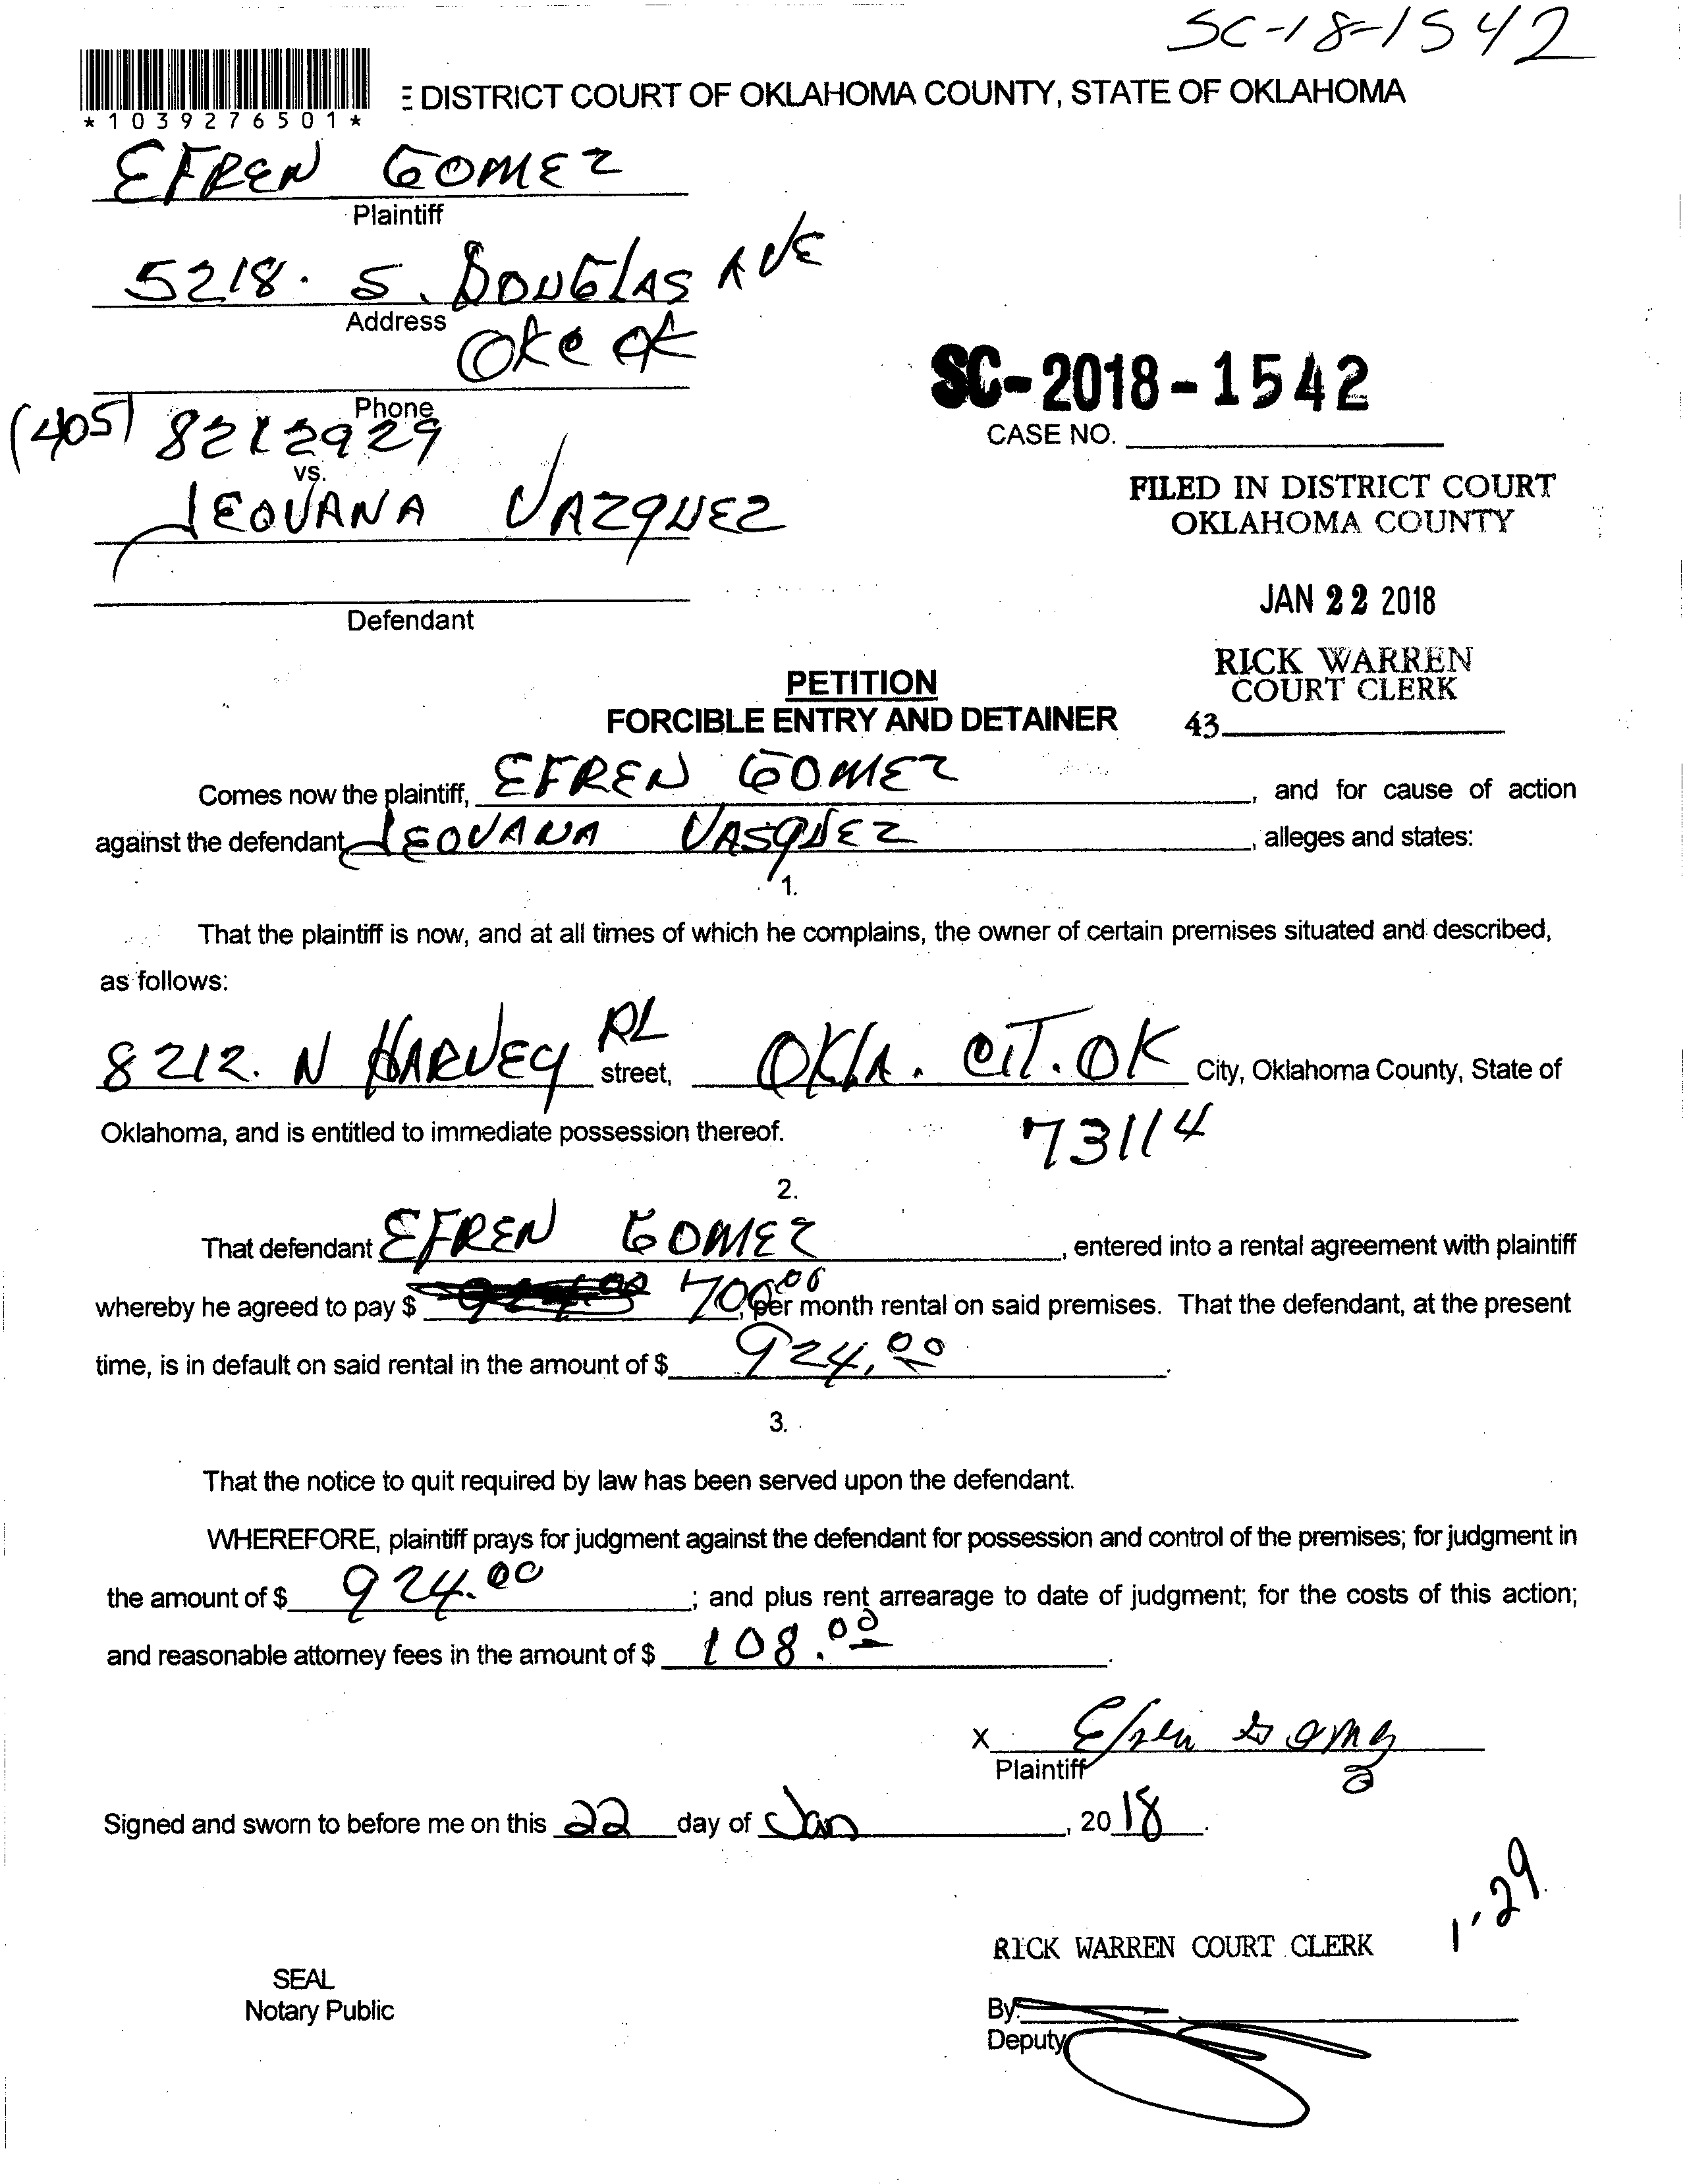 SC-18-1542
*1039276501*
E DISTRICT COURT OF OKLAHOMA COUNTY, STATE OF OKLAHOMA
EFREN GOMEZ
Plaintiff
5218. S. DOUGLAS AVE
Address
OKC OK
Phone
(405) 8212929
vs.
JEOVANA VAZQUEZ
Defendant
SC-2018-1542
CASE NO.
FILED IN DISTRICT COURT
OKLAHOMA COUNTY
JAN 22 2018
RICK WARREN
COURT CLERK
43
PETITION
FORCIBLE ENTRY AND DETAINER
Comes now the plaintiff, EFREN GOMEZ, and for cause of action
against the defendant JEOVANA VASQUEZ, alleges and states:
1.
That the plaintiff is now, and at all times of which he complains, the owner of certain premises situated and described,
as follows:
8212. N HARVEY RL street, OKLA. CIT. OK City, Oklahoma County, State of
Oklahoma, and is entitled to immediate possession thereof. 73114
2.
That defendant EFREN GOMEZ, entered into a rental agreement with plaintiff
whereby he agreed to pay $ 700.00, per month rental on said premises. That the defendant, at the present
time, is in default on said rental in the amount of $ 924.00.
3.
That the notice to quit required by law has been served upon the defendant.
WHEREFORE, plaintiff prays for judgment against the defendant for possession and control of the premises; for judgment in
the amount of $ 924.00; and plus rent arrearage to date of judgment; for the costs of this action;
and reasonable attorney fees in the amount of $ 108.00.
X Efren Gomez
Plaintiff
Signed and sworn to before me on this 22 day of Jan, 2018.
1-29
RICK WARREN COURT CLERK
SEAL
Notary Public
By:
Deputy